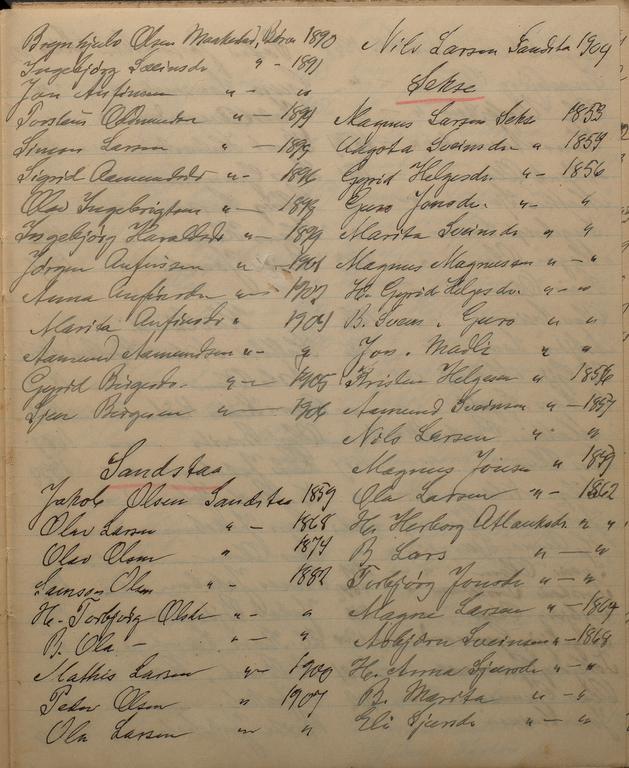 Brynhjulv Olsen Maakestad, Børve 1890
Ingebjørg Sveinsdr " - 1891
Jon Aufinsen " - "
Torsteus Odmundsen " - 1894
Simon Larsen " - 1895
Sigrid Aamundsdr " - 1896
Olav Ingebrigtsen " - 1898
Ingebjørg Haraldsdr " - 1899
Jørgen Aufinsen " - 1901
Anna Aufinsdr " - 1902
Marita Aufinsdr " 1904
Aamund Aamundsen " - "
Gyrid Birgesdr. " - 1905
Sjur Birgesen " - 1906
Sandstaa
Jakob Olsen Sandstaa 1859
Olav Larsen " - 1868
Olav Olsen " 1874
Samson Olsen " - 1882
H. Torbjørg Olsdr " - "
B. Ola - " - "
Mathis Larsen " - 1900
Peder Olsen " 1907
Ola Larsen " - "
Nils Larsen Sandstaa 1904
Sekse
Magnus Larsen Sekse 1853
Aagota Sveinsdr " 1859
Gyrid Helgesdr. " - 1856
Guro Jonsdr. " - "
Marita Sveinsdr " "
Magnus Magnussen " - "
H. Gyrid Helgesdr. " - "
B. Svein. Guro " "
Jon. Madli " "
Kristen Helgesen " 1856
Aamund Sveinsen " - 1857
Nils Larsen " "
Magnus Jonsen " 1859
Ola Larsen " - 1862
H. Herborg Aslaksdr. " "
B. Lars " - "
Torbjørg Jonsdr " - "
Magne Larsen " - 1864
Asbjørn Sveinsen " - 1868
H. Anna Sjursdr " - "
B. Marita " - "
Eli Sjursdr " - "